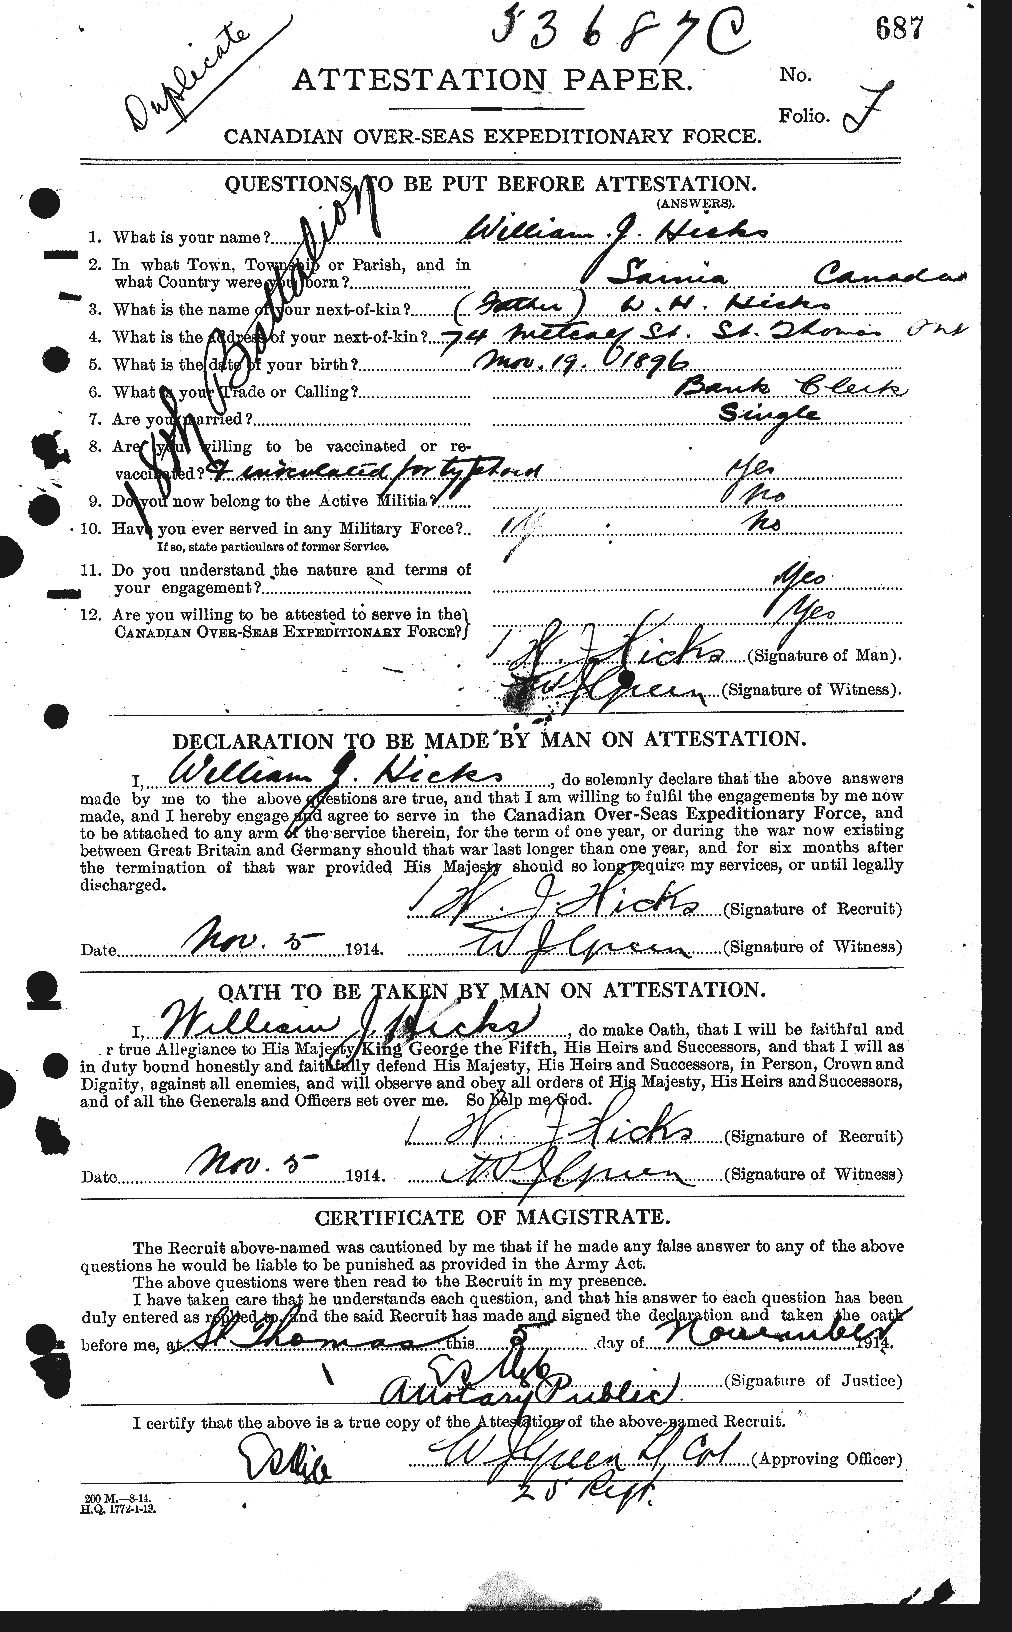 53687C
687
Duplicate
ATTESTATION PAPER.
No.
Folio.
CANADIAN OVER-SEAS EXPEDITIONARY FORCE.
18th Battalion
QUESTIONS TO BE PUT BEFORE ATTESTATION.
(ANSWERS).
1. What is your name? William J. Hicks
2. In what Town, Township or Parish, and in
what Country were you born? Sarnia Canada
3. What is the name of your next-of-kin? (Father) W. H. Hicks
4. What is the address of your next-of-kin? 74 Metcalf St. St. Thomas Ont
5. What is the date of your birth? Nov. 19. 1896
6. What is your Trade or Calling? Bank Clerk
7. Are you married? Single
8. Are you willing to be vaccinated or re-
vaccinated? & inoculated for typhoid Yes
9. Do you now belong to the Active Militia? No
10. Have you ever served in any Military Force? No
If so, state particulars of former Service.
11. Do you understand the nature and terms of
your engagement? Yes
12. Are you willing to be attested to serve in the
CANADIAN OVER-SEAS EXPEDITIONARY FORCE? Yes
W. J. Hicks (Signature of Man).
W J Green (Signature of Witness).
DECLARATION TO BE MADE BY MAN ON ATTESTATION.
I, William J. Hicks, do solemnly declare that the above answers
made by me to the above questions are true, and that I am willing to fulfil the engagements by me now
made, and I hereby engage and agree to serve in the Canadian Over-Seas Expeditionary Force, and
to be attached to any arm of the service therein, for the term of one year, or during the war now existing
between Great Britain and Germany should that war last longer than one year, and for six months after
the termination of that war provided His Majesty should so long require my services, or until legally
discharged.
W. J. Hicks (Signature of Recruit)
Date Nov. 5 1914. W J Green (Signature of Witness)
OATH TO BE TAKEN BY MAN ON ATTESTATION.
I, William J. Hicks, do make Oath, that I will be faithful and
r true Allegiance to His Majesty King George the Fifth, His Heirs and Successors, and that I will as
in duty bound honestly and faithfully defend His Majesty, His Heirs and Successors, in Person, Crown and
Dignity, against all enemies, and will observe and obey all orders of His Majesty, His Heirs and Successors,
and of all the Generals and Officers set over me. So help me God.
W. J. Hicks (Signature of Recruit)
Date Nov. 5 1914. W J Green (Signature of Witness)
CERTIFICATE OF MAGISTRATE.
The Recruit above-named was cautioned by me that if he made any false answer to any of the above
questions he would be liable to be punished as provided in the Army Act.
The above questions were then read to the Recruit in my presence.
I have taken care that he understands each question, and that his answer to each question has been
duly entered as replied to, and the said Recruit has made and signed the declaration and taken the oath
before me, at St. Thomas this 5 day of November 1914.
(Signature of Justice)
A Notary Public
I certify that the above is a true copy of the Attestation of the above-named Recruit.
W J Green Lt Col (Approving Officer)
25 Regt.
200 M.—8-14.
H.Q. 1772-1-13.